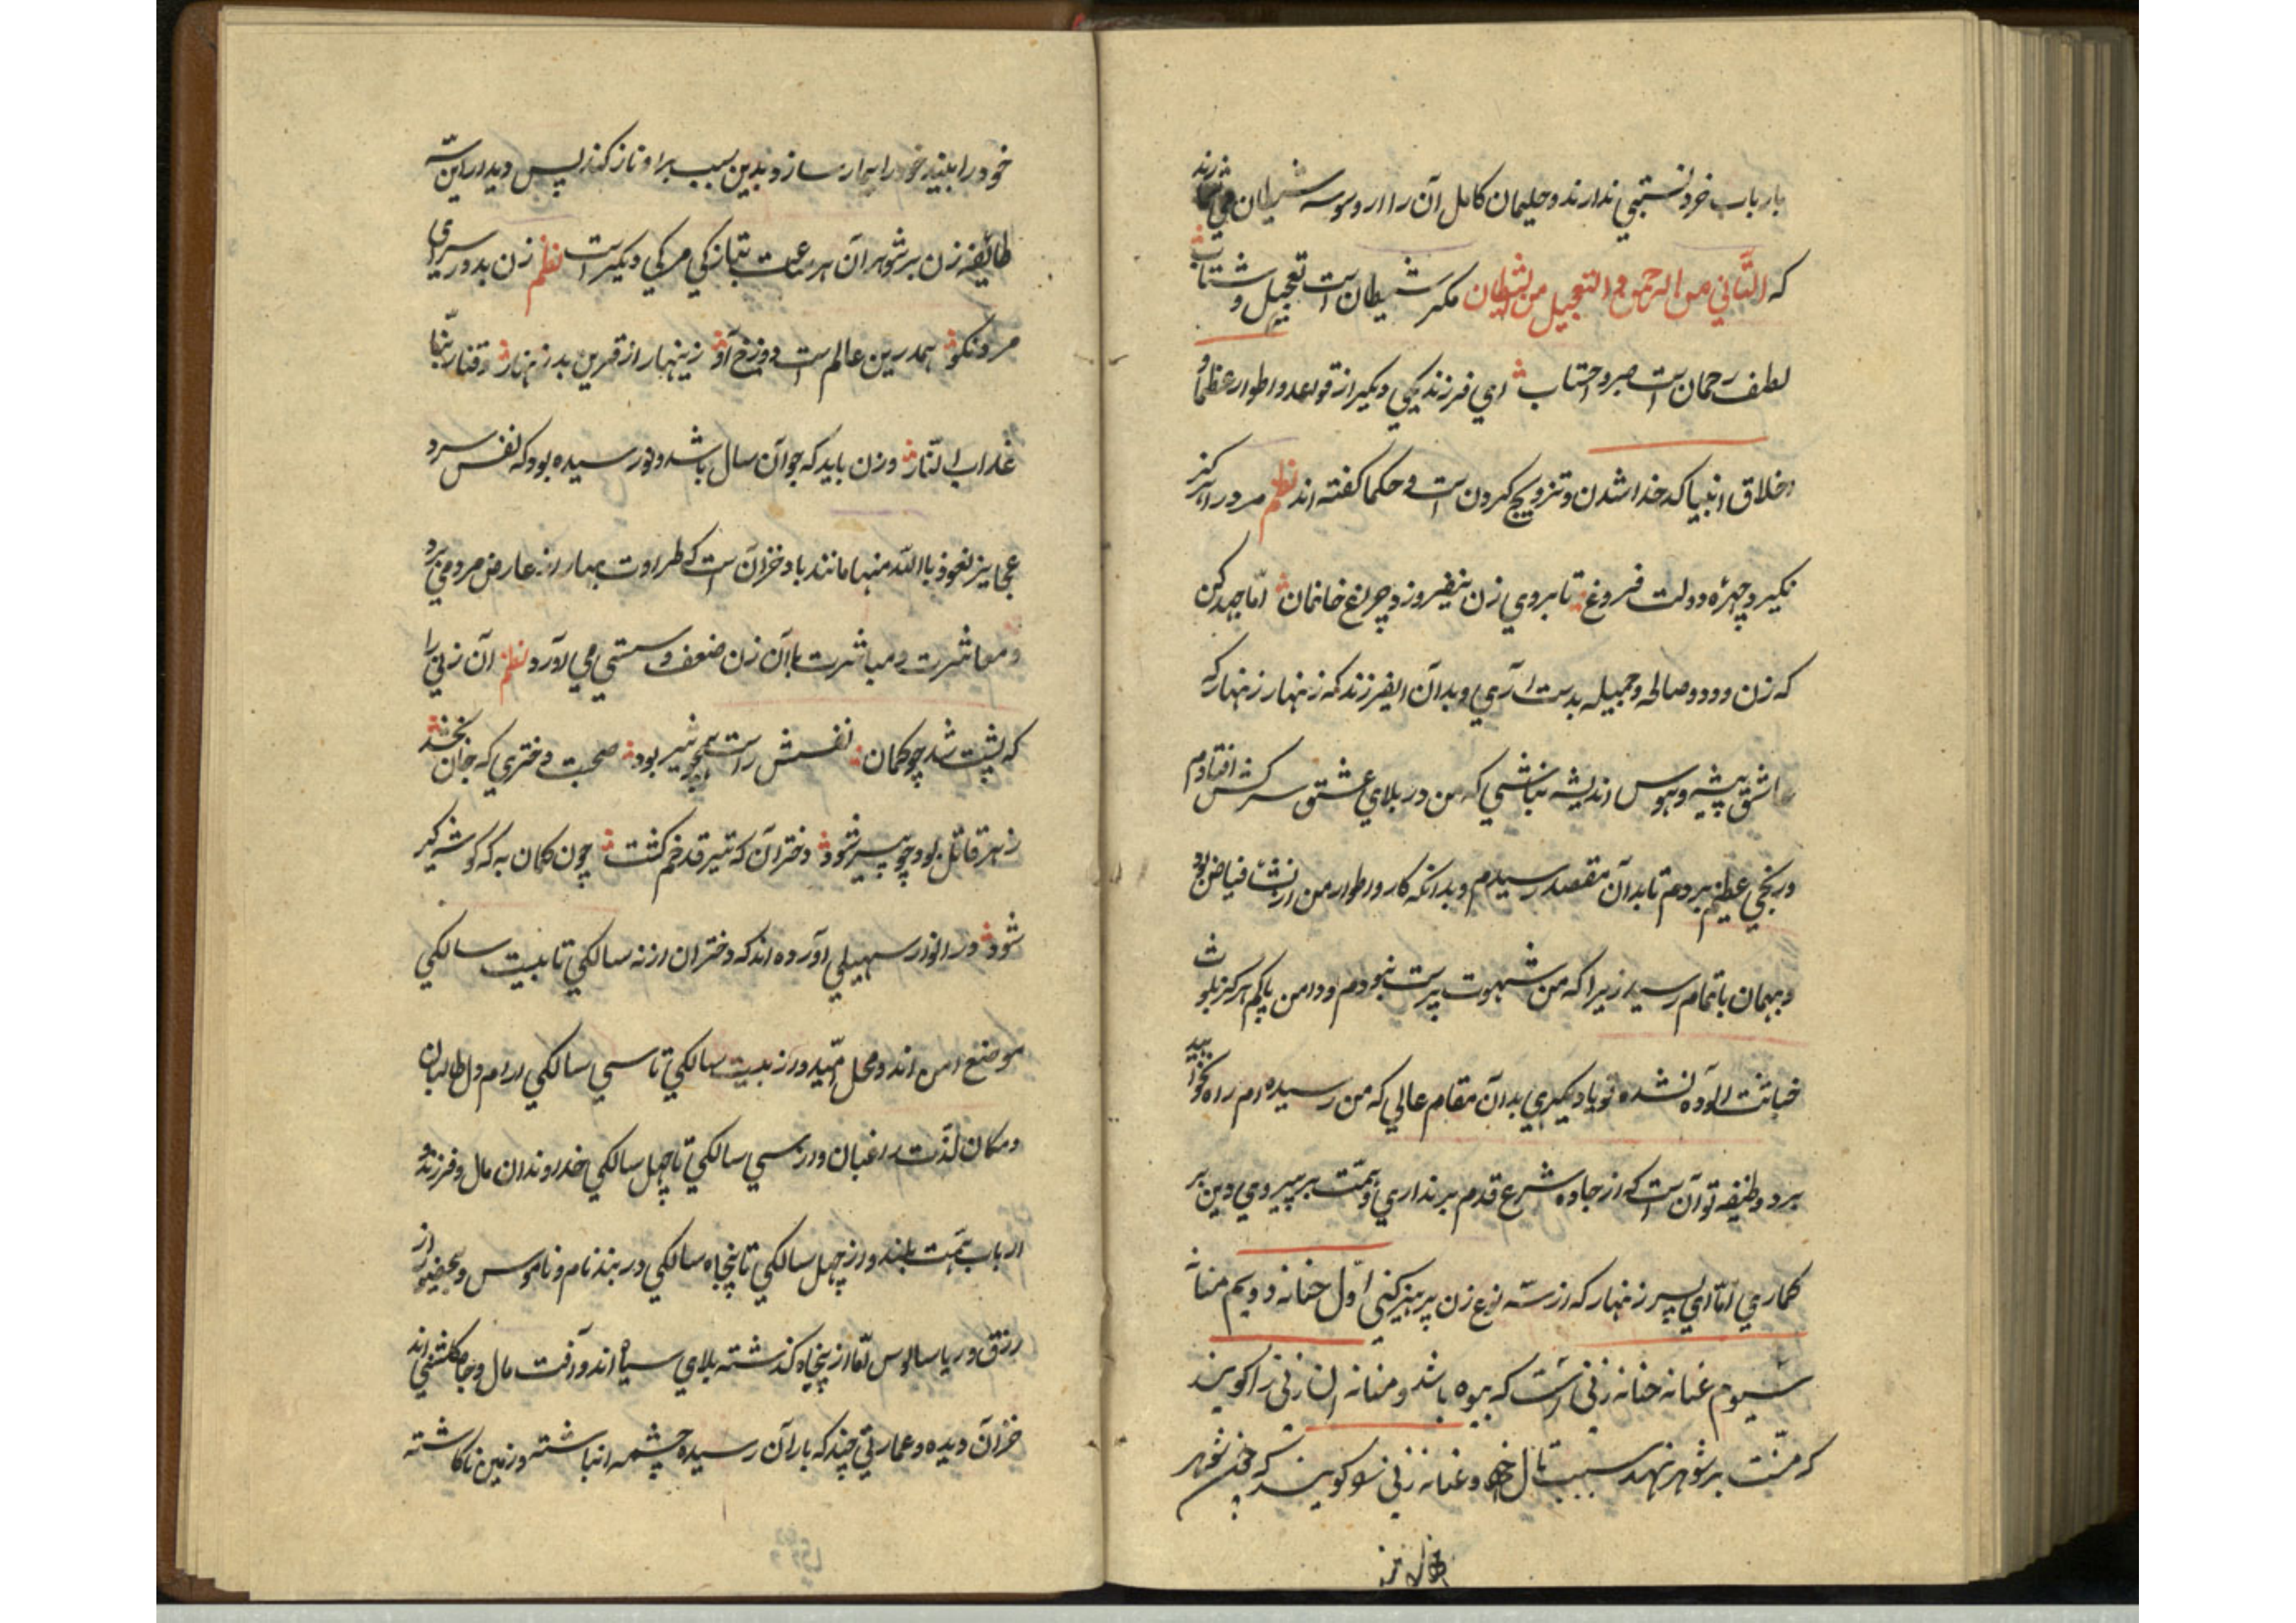 بارباب خرد نسبتی ندارند و حلیمان کامل آن را از وسوسه شیطان می شمارند
که التَّأنی من الرحمن و التعجیل من الشیطان مکر شیطان است تعجیل و شتاب
لطف رحمان است صبر و احتساب ای فرزند یکی دیگر از قواعد و اطوار عظما و
اخلاق انبیا کدخدا شدن و تزویج کردن است و حکما گفته اند نظم مرد را هرگز
نگیرد چهره دولت فروغ تا بروی زن نیفروزد چراغ خانمان امّا جهد کن
که زن ودود و صالحه و جمیله بدست آری و بدان ایفرزند که زنهار زنهار که
عاشق پیشه و هوس اندیشه نباشی که من در بلای عشق سرکش افتادم
و رنجی عظیم بردم تا بدان مقصد رسیدم و بدانکه کار و اطوار من از نشٔا فیاض بود
و بهمان باتمام رسید زیرا که من شهوت پرست نبودم و دامن پاکم هرگز بلوث
خباثت آلوده نشده تو یا دیگری بدان مقام عالی که من رسیده ام راه نخواهید
برد وظیفه تو آن است که از جاده شرع قدم برنداری و همّت بر پیروی دین بر
کماری امّا ای پسر زنهار که از سه نوع زن پرهیز کنی اوّل حنانه دویم منانه
سیوم غنانه حنانه زنی است که بیوه باشد و منانه ان زنی را کویند
که منّت بر شوهر نهد بسبب مال خود و غنانه زنی را کویند که چون شوهر
خود را بیند خود را بیمار سازد و بدین سبب بر او ناز کند پس دیدار این سه
طائفه زن بر شوهر آن هر ساعت بتازکی مرکی دیکر است نظم زن بد در سرای
مرد نکو همدرین عالم است دوزخ او زینهار از قرین بد زنهار وقنا ربّنا
عذاب النّار و زن باید که جوان سال باشد و نورسیده بود که نفس سرد
عجایز نعوذ باللّه منها مانند باد خزان است که طراوت بهار از عارض مرد می برد
و معاشرت و مباشرت با آن زن ضعف و سستی می آورد نظم آن زنی را
که پشت شد چو کمان نفسش راست همچو تیر بود صحبت دختری که جان بخشد
زهر قاتل بود چو پیر شود دختر آن که تیر قد خم کشت چون کمان به که کوشه کیر
شود در انوار سهیلی آورده اند که دختران از نه سالکی تا بیست سالکی
موضع امن اند و محل امّید و از بیست سالکی تا سی سالکی آرام دل طالبان
و مکان لذّت راغبان و از سی سالکی تا چهل سالکی خداوندان مال و فرزند و
ارباب همّت بلند و از چهل سالکی تا پنجاه سالکی در بند نام و ناموس و بی حضور از
رزق و ریا سالوس امّا از پنجاه کذشته بلای سیاه اند و آفت مال و جاه کلشنی اند
خزان دیده و عمارتی چند که باران رسیده چشمه انباشته و زمین ناکاشته